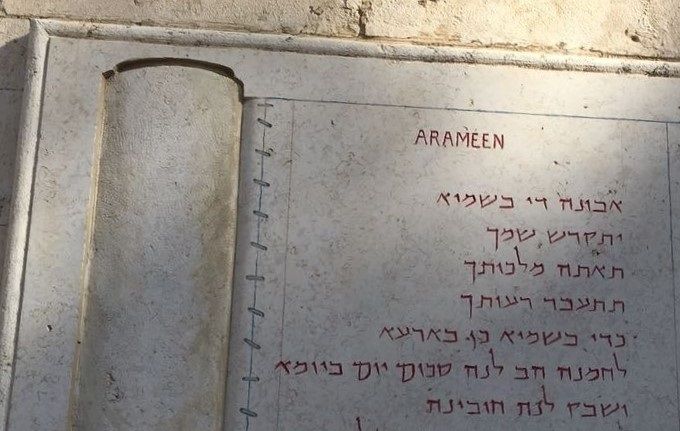 ARAMÉEN
אבונה די בשמיא
יתקדש שמך
תאתה מלכותך
תתעבד רעותך
כדי בשמיא כן בארעא
לחמנה הב לנה סכום יום ביומא
ושבק לנה חובינה